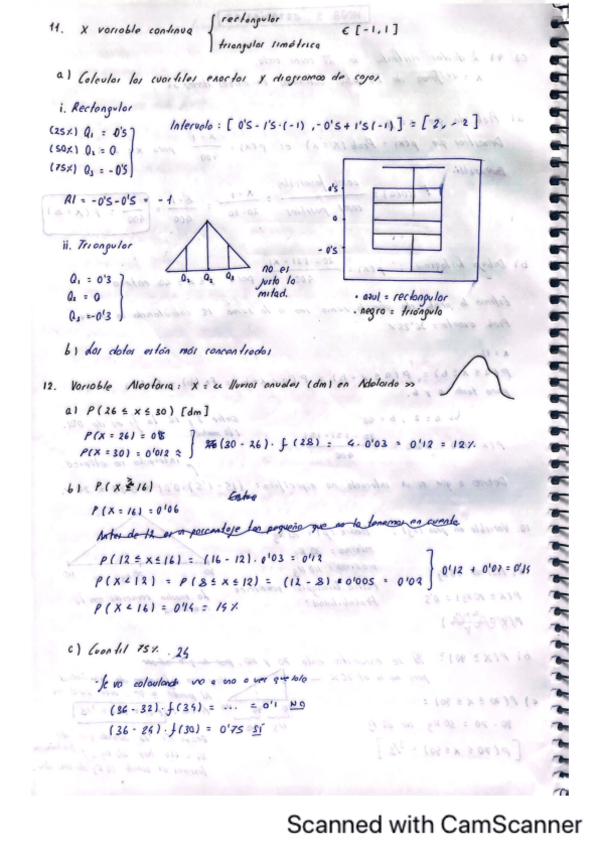 11. X variable continua { rectangular ∈ [-1,1]
triangular simétrica
a) Calcular los cuartiles exactos y diagramas de cajas
i. Rectangular
(25%) Q₁ = 0'5
(50%) Q₂ = 0
(75%) Q₃ = -0'5
Intervalo: [0'5 - 1'5·(-1), -0'5 + 1'5(-1)] = [2, -2]
RI = -0'5 - 0'5 = -1
0'5
0
-0'5
ii. Triangular
Q₁ = 0'3
Q₂ = 0
Q₃ = -0'3
Q₂ Q₃
no es
justo la
mitad.
• azul = rectangular
• negro = triángulo
b) Los datos están más concentrados
12. Variable Aleatoria: X = « lluvias anuales (dm) en Adelaida »
a) P(26 ≤ x ≤ 30) [dm]
P(X = 26) =
P(X = 30) = 0'012
(30 - 26) · f(28) = 4·0'03 = 0'12 = 12%
b) P(X 16)
P(X = 16) = 0'06
Antes de 12 es un porcentaje tan pequeño que no lo tenemos en cuenta
P(12 ≤ x ≤ 16) = (16 - 12)·0'03 = 0'12
P(X < 12) = P(8 ≤ x ≤ 12) = (12 - 8) · 0'005 = 0'02
0'12 + 0'02 = 0'14
P(X < 16) = 0'14 = 14%
c) Cuantil 75%. 24
Se va calculando uno a uno a ver
(36 - 32)·f(34) = ... = 0'1 NO
(36 - 24)·f(30) = 0'75 SÍ
Scanned with CamScanner